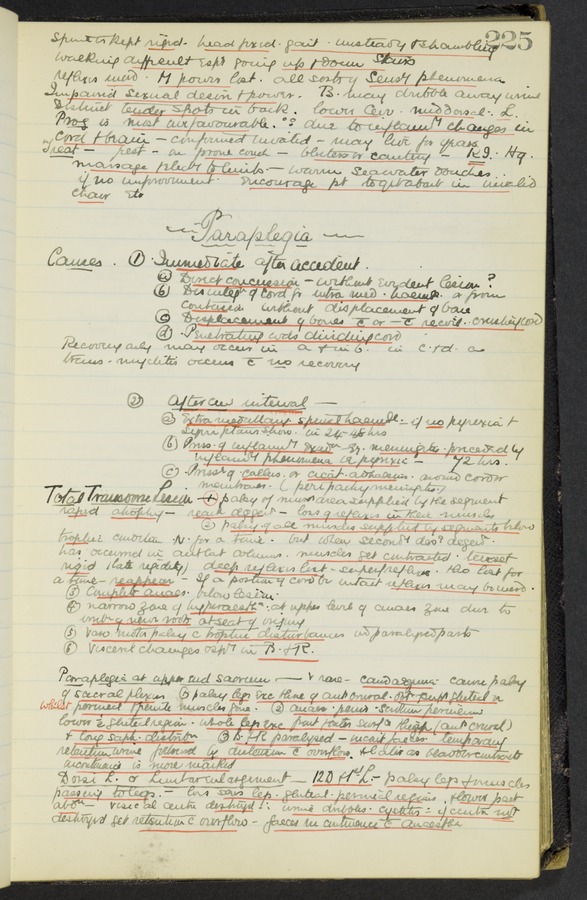 225
Spine is kept rigid. head fixed. gait. unsteady & shambling
walking difficult espt going up & down stairs
reflexes incd. M powers lost. all sorts of Sensy phenomena
Impaired sexual desire & power. B. may dribble away urine
District tender spots in back. lower Cerv. middorsal. L.
Prog is most unfavourable. due to inflamy changes in
cord & brain – confirmed invalid – may live for years
Treat – rest – on prone couch – blisters or cautery – KI. Hg.
massage [..] to limbs – warm seawater douches.
if no improvement. Encourage pt to get about in invalid
chair etc
Paraplegia
Causes. ① Immediate after accident.
ⓐ Direct concussion – without evident lesion?
ⓑ of cord fr intra med. haemge or from
contusion without displacement of bone
ⓒ Displacement of bones c̄ or – c̄ recoil. crushing cord
ⓓ Penetrating wds dividing cord
Recovery only may occur in a & in b. in c. & d. as
trans. myelitis occurs c̄ no recovery
② After an interval –
ⓐ Extramedullary spinal haemge. – if no pyrexia &
symptoms show in 24-48 hrs
ⓑ Press. of inflamy Exudn Eg. meningitis preceded by
inflamy phenomena & pyrexia – 72 hrs.
ⓒ Press of callus, or cicat. adhesions around cord or
membranes (peripachymeningitis)
Total Transverse Lesion – ① palsy of musc area supplied by the segment
rapid atrophy – react. degen – loss of reflexes in these muscles
② palsy of all muscles supplied by segments below
trophic condition N. for a time. but when secondy desc degen.
has occurred in antlat columns. muscles get contracted
rigid (late rapidly) deep reflexes lost – superf reflexes also lost for
a time – reappear – If a portion of cord be intact reflexes may be incd.
③ Complete anaes. below lesion.
④ narrow zone of hyperaesth. at upper level of anaes zone due to
irritn of nerve roots at seat of injury
⑤ Vaso motor palsy & trophic disturbances in paralysed parts
⑥ Visceral changes espt in B. & R.
Paraplegia at upper end sacrum – v rare – cauda equina cause palsy
of sacral plexus ① palsy legs exc those of ant crural. Obt. supf gluteal &
whilst perineal & penile muscles gone. ② anaes. penis – scrotum perineum
lower ½ gluteal region. whole leg exc front & outer surf thigh (ant crural)
& long saph. distribn ③ B & R paralysed – incont faeces & temporary
retention urine followed by distension & overflow. & later as bladder contracts
incontinence is more marked
Dorsi L. or Lumbar enlargement – 12D & 1st L – palsy legs & muscles
passing to legs. – loss sens leg. gluteal. perineal regions. & lower part
abdn – vesical centre destroyed :. urine dribbles. cystitis – if centre not
destroyed get retention c̄ overflow – faeces incontinence c̄ anaesthe